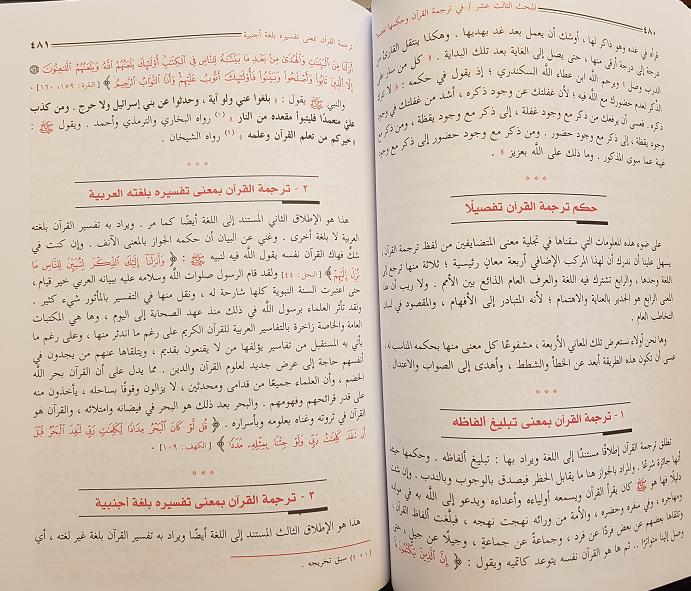 ٤٨٠
المبحث الثالث عشر / في ترجمة القرآن وحكمها تفصيلا
قرأه في غده وهو ذاكر لها ، أوشك أن يعمل بعد غد بهديها . وهكذا ينتقل القارئ من
درجة إلى درجة أرقى منها ، حتى يصل إلى الغاية بعد تلك البداية . « كل من سار على
الدرب وصل » ويرحم الله ابن عطاء الله السكندري ؛ إذ يقول في حكمه : « لا تترك
الذكر لعدم حضورك مع الله فيه ؛ لأن غفلتك عن وجود ذكره ، أشد من غفلتك في وجود
ذكره. فعسى أن يرفعك من ذكر مع وجود غفلة ، إلى ذكر مع وجود يقظة ، ومن ذكر مع
وجود يقظة ، إلى ذكر مع وجود حضور . ومن ذكر مع وجود حضور إلى ذكر مع وجود
غيبة عما سوى المذكور . وما ذلك على الله بعزيز » .
* * *
حكم ترجمة القرآن تفصيلًا
على ضوء هذه المعلومات التي سقناها في تجلية معنى المتضايفين من لفظ ترجمة القرآن ،
يسهل علينا أن ندرك أن لهذا المركب الإضافي أربعة معانٍ رئيسية ؛ ثلاثة منها ترجع إلى
اللغة وحدها ، والرابع تشترك فيه اللغة والعرف العام الذائع بين الأمم . ولا ريب أن هذا
المعنى الرابع هو الجدير بالعناية والاهتمام ؛ لأنه المتبادر إلى الأفهام ، والمقصود في لسان
التخاطب العام .
وها نحن أولاء نستعرض تلك المعاني الأربعة ، مشفوعًا كل معنى منها بحكمه المناسب له ،
عسى أن تكون هذه الطريقة أبعد عن الخطأ والشطط ، وأهدى إلى الصواب والاعتدال .
* * *
١ - ترجمة القرآن بمعنى تبليغ ألفاظه
تطلق ترجمة القرآن إطلاقًا مستندًا إلى اللغة ويراد بها : تبليغ ألفاظه . وحكمها حينئذ
أنها جائزة شرعًا . والمراد بالجواز هنا ما يقابل الحظر فيصدق بالوجوب وبالندب . وإن شئت
دليلًا فها هو ﷺ كان يقرأ القرآن ويسمعه أولياءه وأعداءه ويدعو إلى الله به في مولده
ومهاجره ، وفي سفره وحضره ، والأمة من ورائه نهجت نهجه ، فبلّغت ألفاظ القرآن ،
وتلقاها بعضهم عن بعض فردًا عن فرد ، وجماعة عن جماعة ، وجيلًا عن جيل ، حتى
وصل إلينا متواترًا .. ثم ها هو القرآن نفسه يتوعد كاتميه ويقول : ﴿ إِنَّ الَّذِينَ يَكْتُمُونَ مَا
ترجمة القرآن بمعنى تفسيره بلغة أجنبية
٤٨١
أَنزَلْنَا مِنَ الْبَيِّنَاتِ وَالْهُدَىٰ مِنْ بَعْدِ مَا بَيَّنَّاهُ لِلنَّاسِ فِي الْكِتَابِ أُولَٰئِكَ يَلْعَنُهُمُ اللَّهُ وَيَلْعَنُهُمُ اللَّاعِنُونَ
إِلَّا الَّذِينَ تَابُوا وَأَصْلَحُوا وَبَيَّنُوا فَأُولَٰئِكَ أَتُوبُ عَلَيْهِمْ وَأَنَا التَّوَّابُ الرَّحِيمُ ﴾ [ البقرة : ١٥٩ ، ١٦٠ ] .
والنبي ﷺ يقول : « بلغوا عني ولو آية ، وحدثوا عن بني إسرائيل ولا حرج . ومن كذب
عليّ متعمدًا فليتبوأ مقعده من النار » (١) رواه البخاري والترمذي وأحمد . ويقول ﷺ :
« خيركم من تعلم القرآن وعلمه » (٢) رواه الشيخان .
* * *
٢ - ترجمة القرآن بمعنى تفسيره بلغته العربية
هذا هو الإطلاق الثاني المستند إلى اللغة أيضًا كما مر . ويراد به تفسير القرآن بلغته
العربية لا بلغة أخرى . وغني عن البيان أن حكمه الجواز بالمعنى الآنف . وإن كنت في
شك فهاك القرآن نفسه يقول الله فيه لنبيه ﷺ : ﴿ وَأَنزَلْنَا إِلَيْكَ الذِّكْرَ لِتُبَيِّنَ لِلنَّاسِ مَا
نُزِّلَ إِلَيْهِمْ ﴾ [ النحل : ٤٤ ] ولقد قام الرسول صلوات الله وسلامه عليه ببيانه العربي خير قيام ،
حتى اعتبرت السنة النبوية كلها شارحة له ، ونقل منها في التفسير بالمأثور شيء كثير .
ولقد تأثر العلماء برسول الله في ذلك منذ عهد الصحابة إلى اليوم ، وها هي المكتبات
العامة والخاصة زاخرة بالتفاسير العربية للقرآن الكريم على رغم ما اندثر منها ، وعلى رغم ما
يأتي به المستقبل من تفاسير يؤلفها من لا يقنعون بقديم ، ويتلقاها عنهم من يجدون في
أنفسهم حاجة إلى عرض جديد لعلوم القرآن والدين . مما يدل على أن القرآن بحر الله
الخضم ، وأن العلماء جميعًا من قدامى ومحدثين ، لا يزالون وقوفًا بساحله ، يأخذون منه
على قدر قرائحهم وفهومهم . والبحر بعد ذلك هو البحر في فيضانه وامتلائه ، والقرآن هو
القرآن في ثروته وغناه بعلومه وبأسراره . ﴿ قُل لَّوْ كَانَ الْبَحْرُ مِدَادًا لِّكَلِمَاتِ رَبِّي لَنَفِدَ الْبَحْرُ قَبْلَ
أَن تَنفَدَ كَلِمَاتُ رَبِّي وَلَوْ جِئْنَا بِمِثْلِهِ مَدَدًا ﴾ [ الكهف : ١٠٩ ] .
* * *
٣ - ترجمة القرآن بمعنى تفسيره بلغة أجنبية
هذا هو الإطلاق الثالث المستند إلى اللغة أيضًا ويراد به تفسير القرآن بلغة غير لغته ، أي
(١ ، ٢) سبق تخريجه .